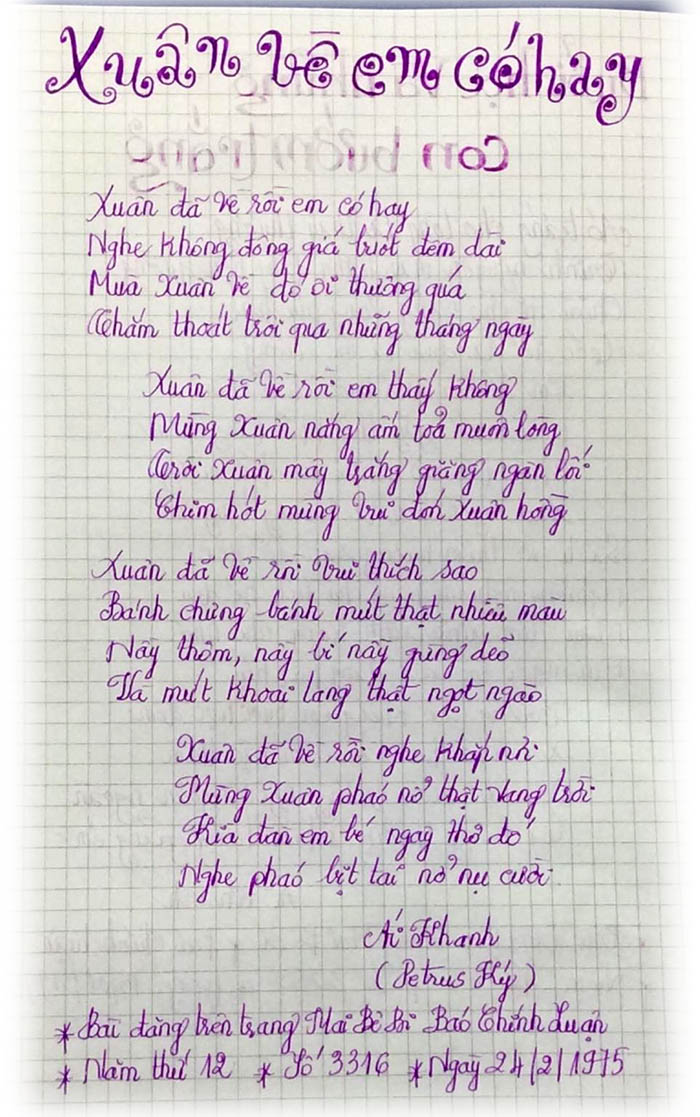 Xuân về em có hay
Xuân đã về rồi em có hay
Nghe không đông giá buốt đêm dài
Mùa Xuân về đó ôi thương quá
Thấm thoát trôi qua những tháng ngày
Xuân đã về rồi em thấy không
Mừng Xuân nắng ấm toả muôn lòng
Trời Xuân mây trắng giăng ngàn lối
Chim hót mừng vui đón Xuân hồng
Xuân đã về rồi vui thích sao
Bánh chưng bánh mứt thật nhiều màu
Này thơm, này bí này gừng dẻo
Và mứt khoai lang thật ngọt ngào
Xuân đã về rồi nghe khắp nơi
Mừng Xuân pháo nổ thật vang trời
Kìa đàn em bé ngây thơ đó
Nghe pháo bịt tai nở nụ cười
Ái Khanh
(Petrus Ký)
* Bài đăng trên trang Mai Bê Bi Báo Chính Luận
* Năm thứ 12 * Số 3316 * Ngày 24/2/1975